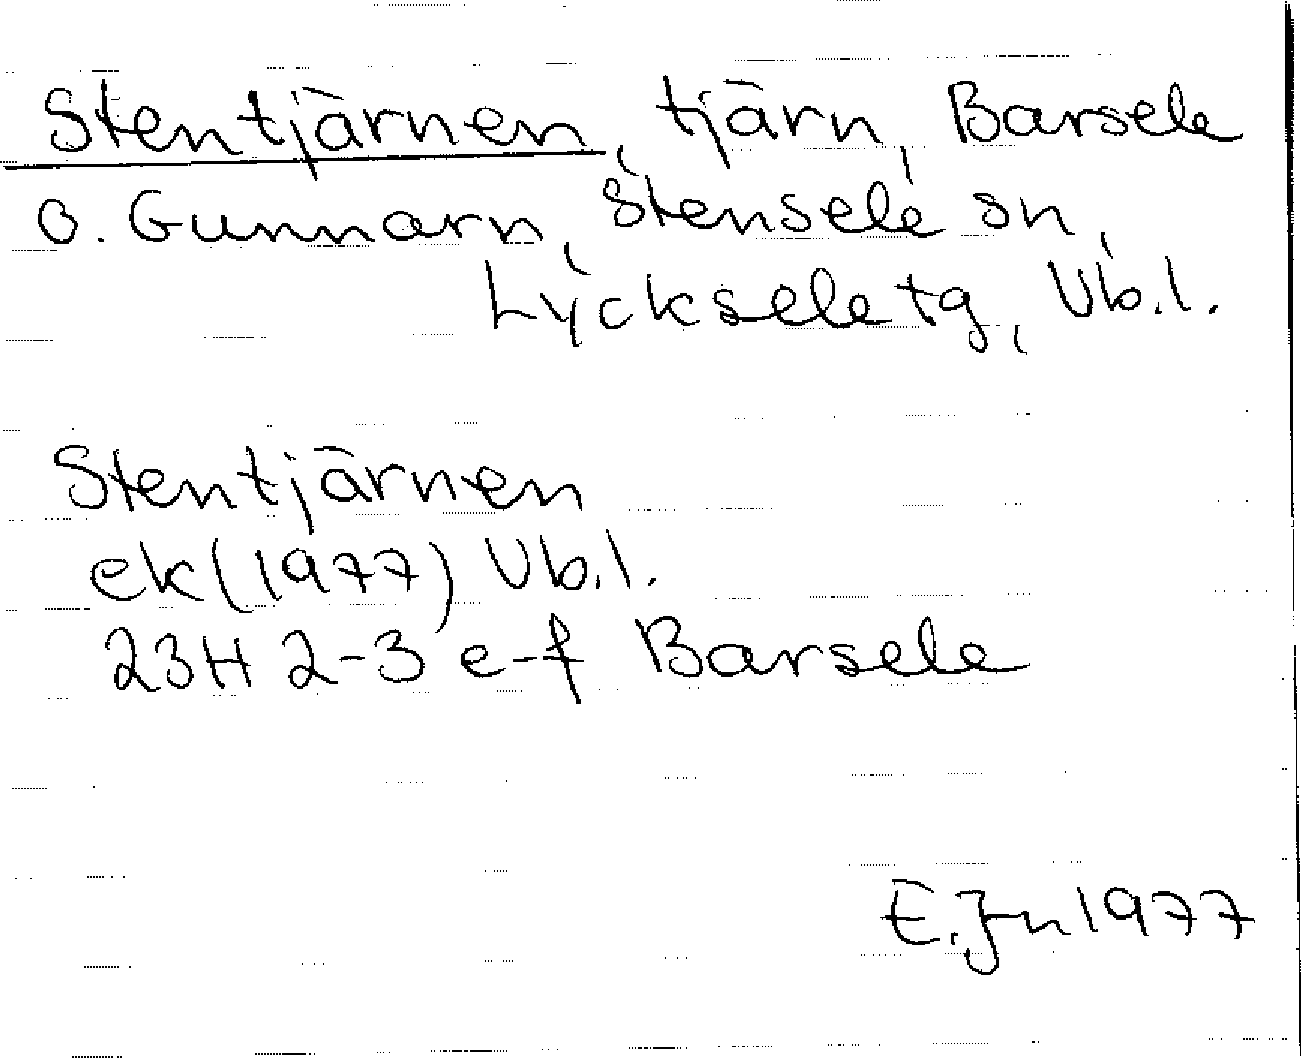 Stentjärnen, tjärn, Barsele
o. Gunnarn, Stensele sn,
Lycksele tg, Vb.l.
Stentjärnen
ek (1977) Vb.l.
23H 2-3 e-f Barsele
E. Jn 1977